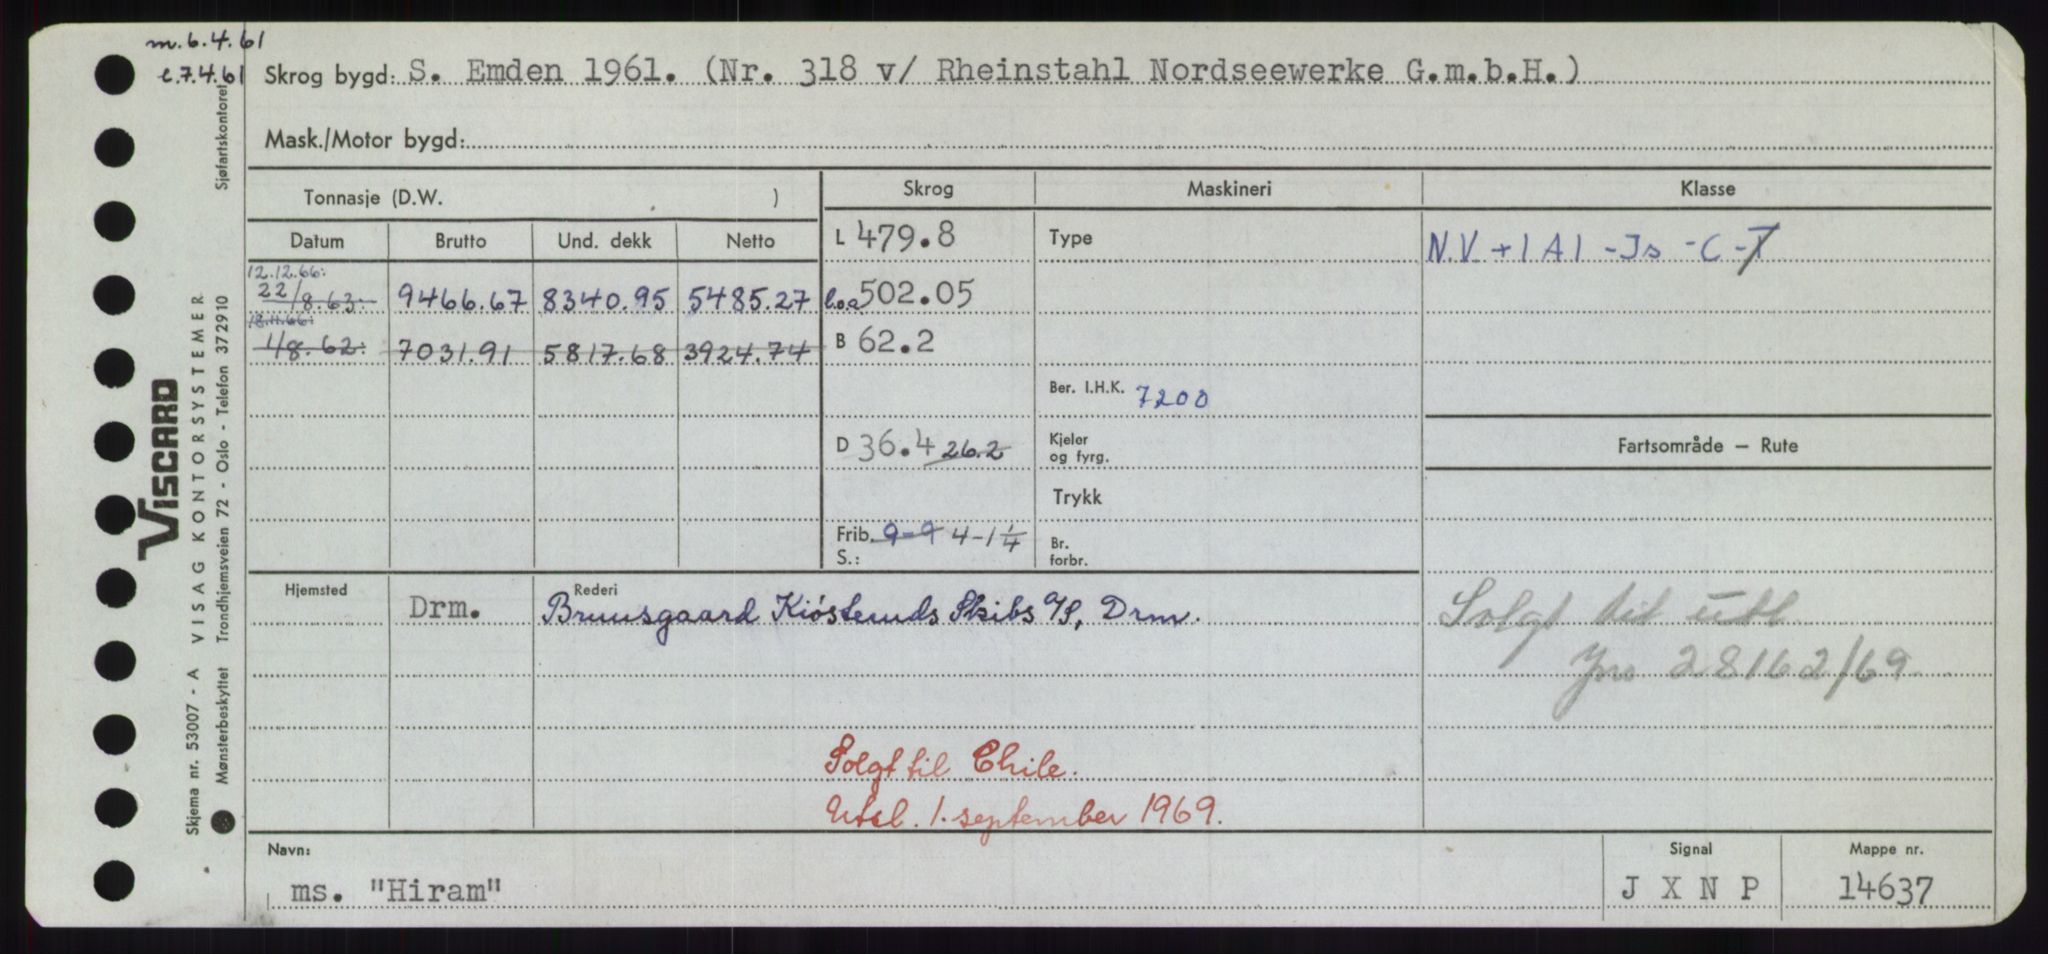 m. 6.4.61
l. 7.4.61
Skrog bygd: S. Emden 1961. (Nr. 318 v/ Rheinstahl Nordseewerke G.m.b.H.)
Mask./Motor bygd:
Tonnasje (D.W. )
Skrog
Maskineri
Klasse
Datum Brutto Und. dekk Netto
L 479.8
Type
N.V. +1A1 -Is -C -T
12.12.66:
22/8.63: 9466.67 8340.95 5485.27
l.o.a 502.05
18.11.66:
1/8.62: 7031.91 5817.68 3924.74
B 62.2
Ber. I.H.K. 7200
D 36.4 26.2
Kjeler
og fyrg.
Fartsområde — Rute
Trykk
Frib. 9-9 4-1 1/4
S.:
Br.
forbr.
Hjemsted
Rederi
Drm. Bruusgaard Kiøsteruds Skibs A/S, Drm.
Solgt til utl.
Jnr 28162/69
Solgt til Chile.
Utsl. 1. september 1969.
Navn:
ms. "Hiram"
Signal
J X N P
Mappe nr.
14637
VISCARD
Skjema nr. 53007 - A VISAG KONTORSYSTEMER
Mønsterbeskyttet Trondhjemsveien 72 - Oslo - Telefon 372910 Sjøfartskontoret